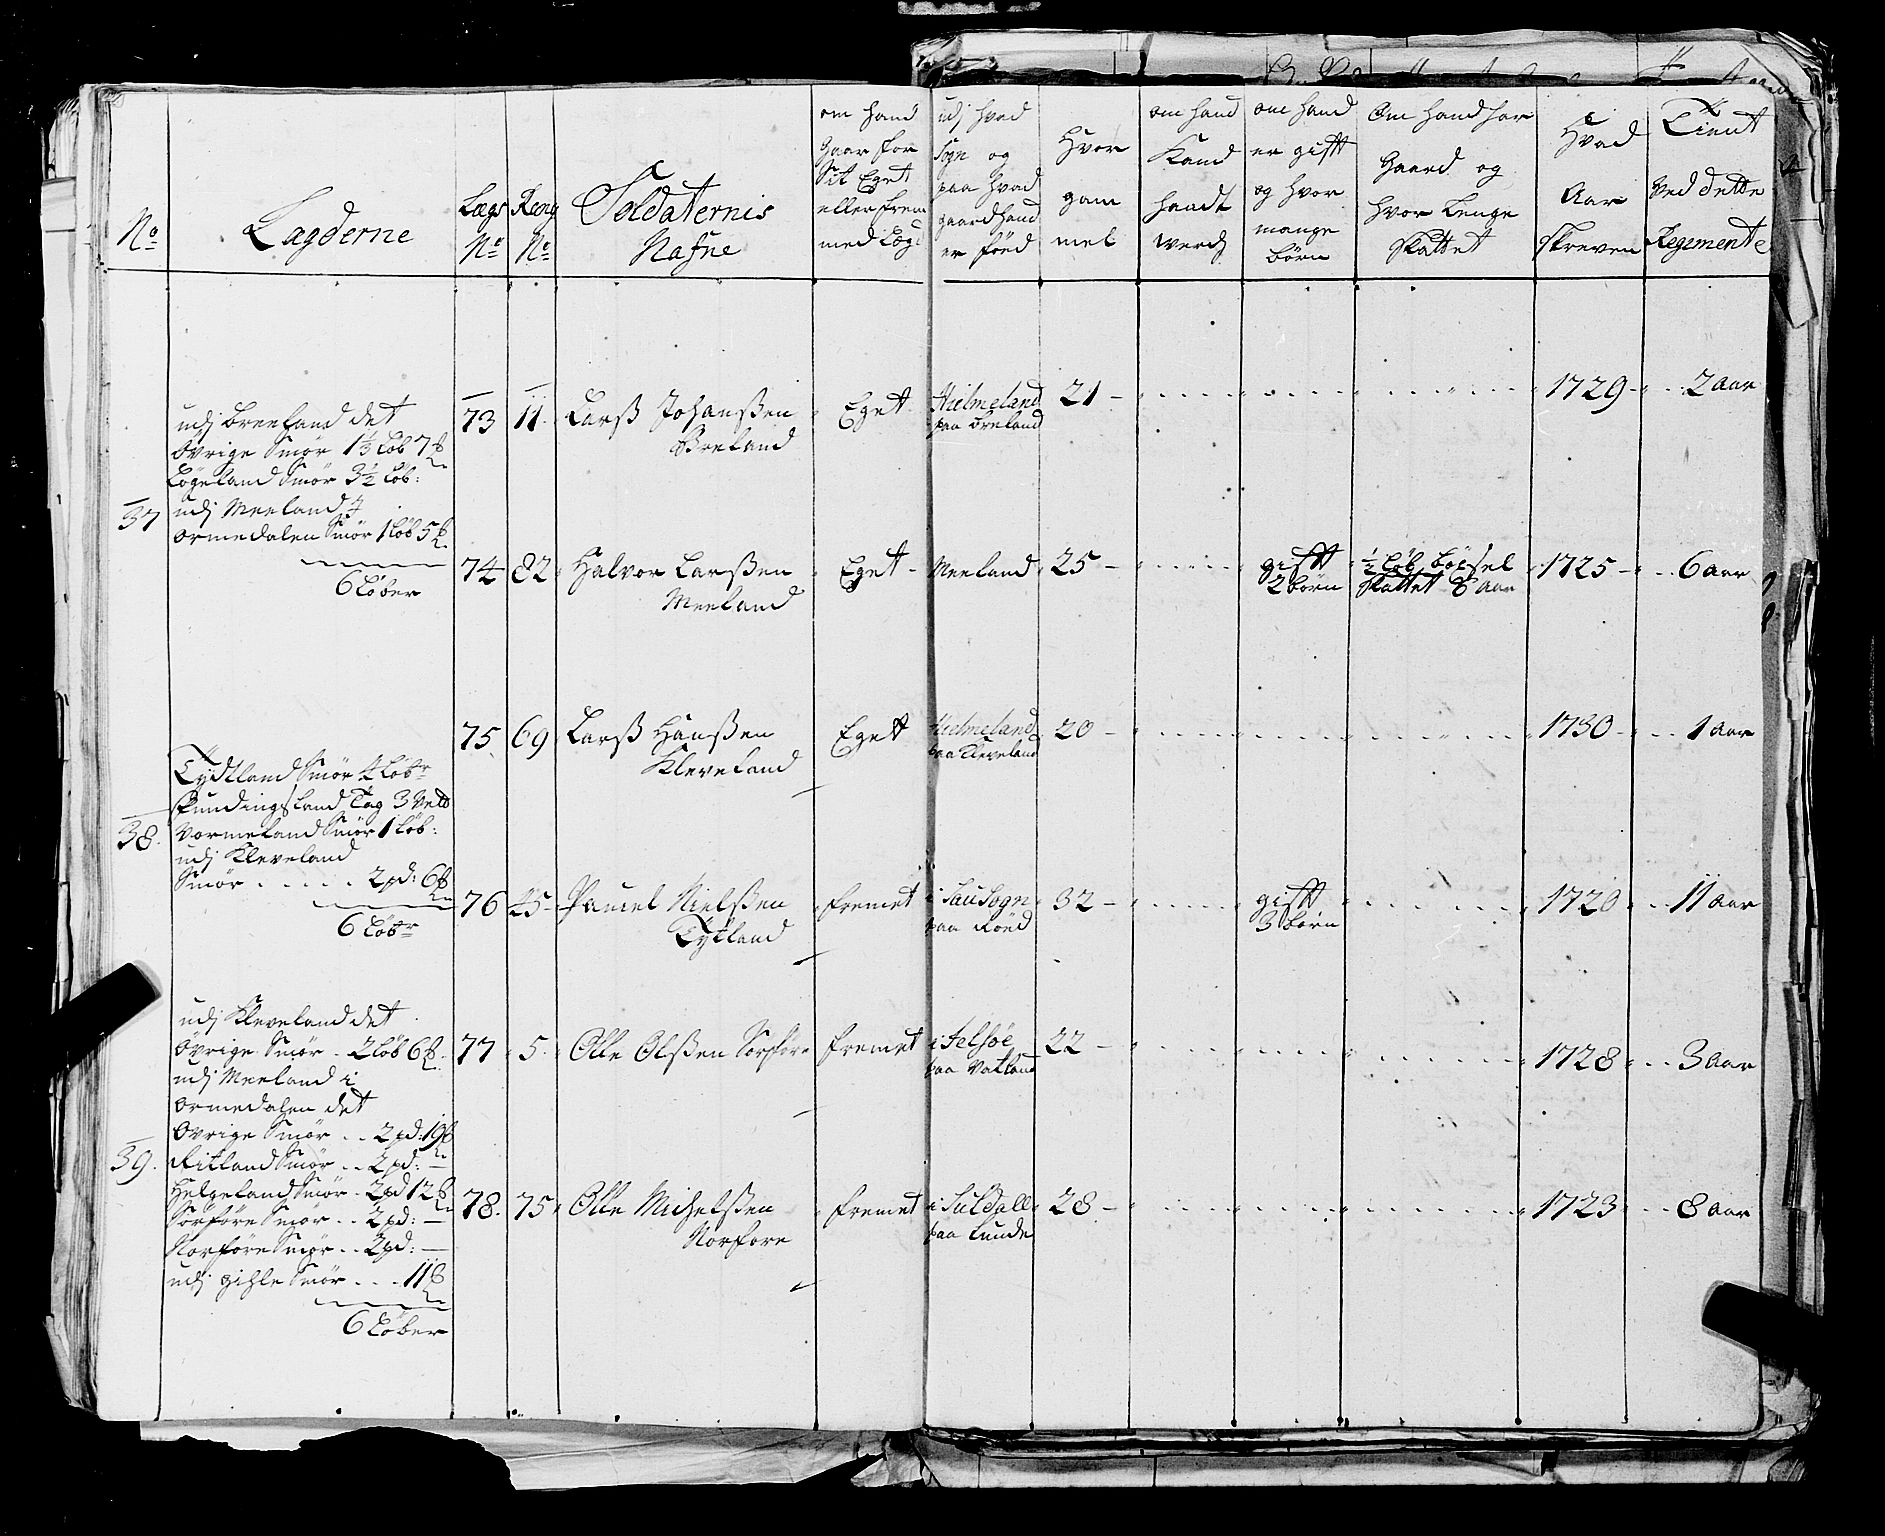 No
Lagderne
Lægs
No
Reng
No
Soldaternis
Nafne
om hand
Gaar for
Sit Eget
eller frem
med Læg
udj hvad
Sogn og
paa hvad
gaard hand
er föed
Hvor
gam
mel
om hand
Kand
haadt
werch
om hand
er gifft
og hvor
mange
börn
Om hand har
Gaard og
hvor Lenge
Skattet
Hvad
Aar
Skreven
Tient
Ved dette
Regemente
37
udj Breeland det
Övrige Smör 1⅓ Löb 7 ℔
Lögeland Smör 3½ Löb:
udj Meeland J
Ormedalen Smör 1 Löb 5 ℔
6 Löber
73 11 Larß Johanßen
Breland
Eget
Hielmeland
paa Breland
21
1729
2 Aar
74 82 Halvor Larßen
Meeland
Eget
Meeland
25
gifft
2 börn
½ Löb böxsel
Skattet 8 Aar
1725
6 Aar
38.
Tydtland Smör 4 Löbr
Skundingsland Tag 3 Vett
Vormeland Smör 1 Löb:
udj Kleveland
Smör . . . . . 2 pd: 6 ℔
6 Löbr
75 69 Larß Hanßen
Kleveland
Eget
Hielmeland
paa Kleveland
20
1730
1 Aar
76 45 Pauel Nielßen
Tytland
fremet
i Sau Sogn
paa Röed
32
gifft
3 börn
1720
11 Aar
39.
udj Kleveland det
Övrige Smör . 2 Löb 6 ℔
udj Meeland i
Ormedalen det
Övrige Smör . . 2 pd: 19 ℔
Ritland Smör . . 2 pd: —
Helgeland Smör . 2 pd 12 ℔
Sörföre Smör . . 2 pd: —
Norföre Smör . . 2 pd: —
udj gihle Smör . . . 11 ℔
6 Löber
77 5 Olle Olßen Sörföre
fremet
i Jelsöe
paa Vatland
22
1728
3 Aar
78. 75 Olle Michelßen
Norföre
fremet
i Suldall
paa Lunde
28
1723
8 Aar